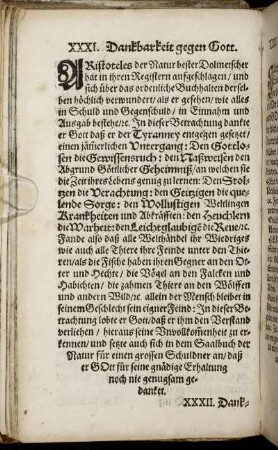 XXXI. Danckbarkeit gegen Gott.
ARistoteles der Natur bester Dolmetscher
hat in ihren Registern aufgeschlagen/ und
sich über das ordenliche Buchhalten dersel-
ben höchlich verwundert/ als er gesehen/ wie alles
in Schuld und Gegenschuld/ in Einnahm und
Ausgab bestehe/ꝛc. In dieser Betrachtung dankte
er Gott daß er der Tyranney entgegen gesetzet/
einen jämerlichen Untergang: Den Gottlo-
sen die Gewissensruch: den Naßweisen den
Abgrund Göttlicher Geheimniß/ an welchen sie
die Zeit ihres Lebens genug zu lernen: Den Stol-
tzen die Verachtung: den Geitzigen die que-
lende Sorge: Den Wollüstigen Weltlingen
Krankheiten und Abkräfften: den Heuchlern
die Warheit: den Leichtglaubigē die Reue/ꝛc.
Fande also daß alle Welthändel ihr Wiedriges
wie auch alle Thiere ihre Feinde unter den Thie-
ren/ als die Fische haben ihren Gegner an den Ot-
ter und Hechte/ die Vögel an den Falcken und
Habichten/ die zahmen Thiere an den Wölffen
und andern Wild/ꝛc. allein der Mensch bleibet in
seinem Geschlecht sein eigner Feind: In dieser Be-
trachtung lobte er Gott/ daß er ihm den Verstand
verliehen/ hieraus seine Unvollkom̃enheit zu er-
kennen/ und setzte auch sich in dem Saalbuch der
Natur für einen grossen Schuldner an/ daß
er GOtt für seine gnädige Erhaltung
noch nie genugsam ge-
dancket.
XXXII. Dank-